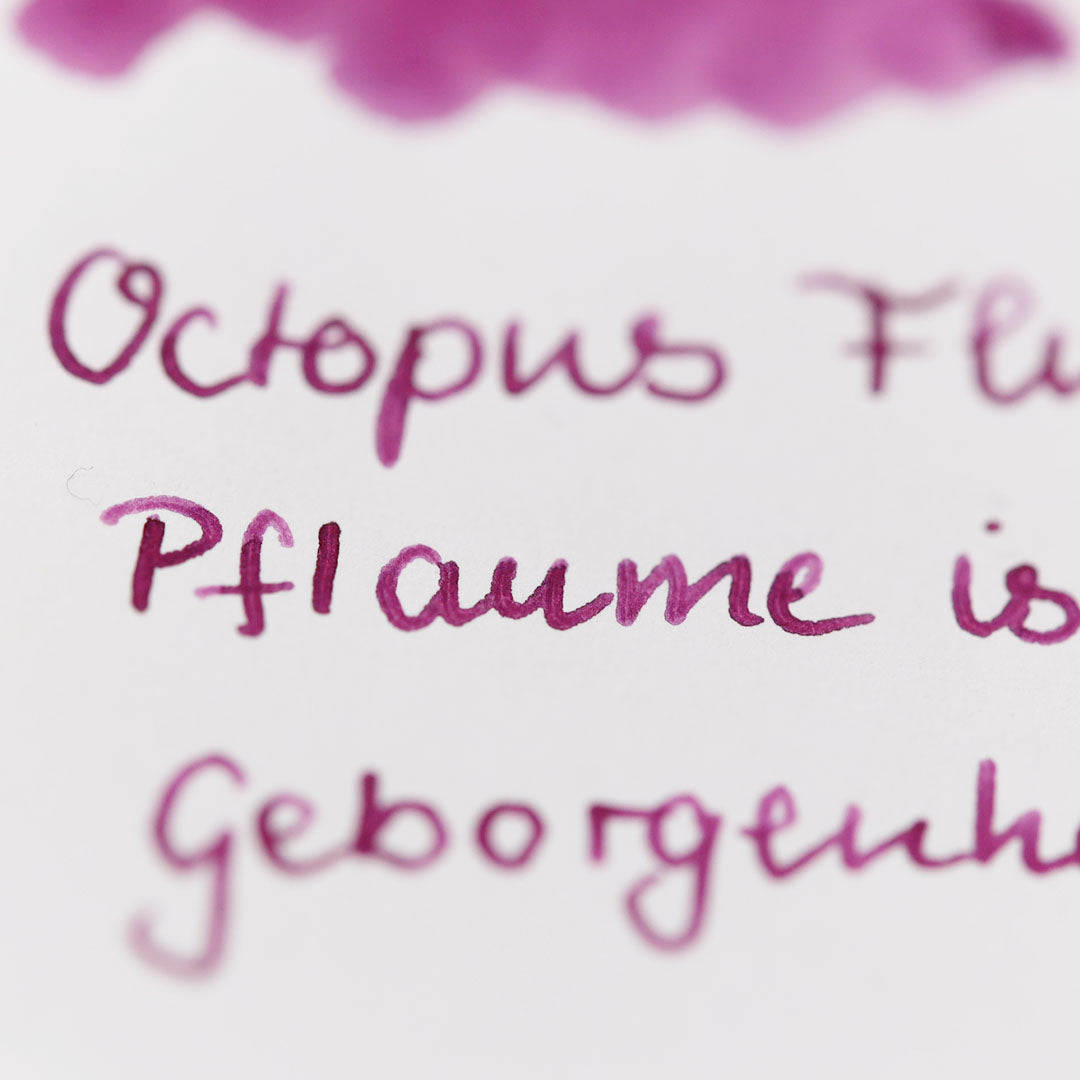 Octopus Flu
Pflaume is
Geborgenhe